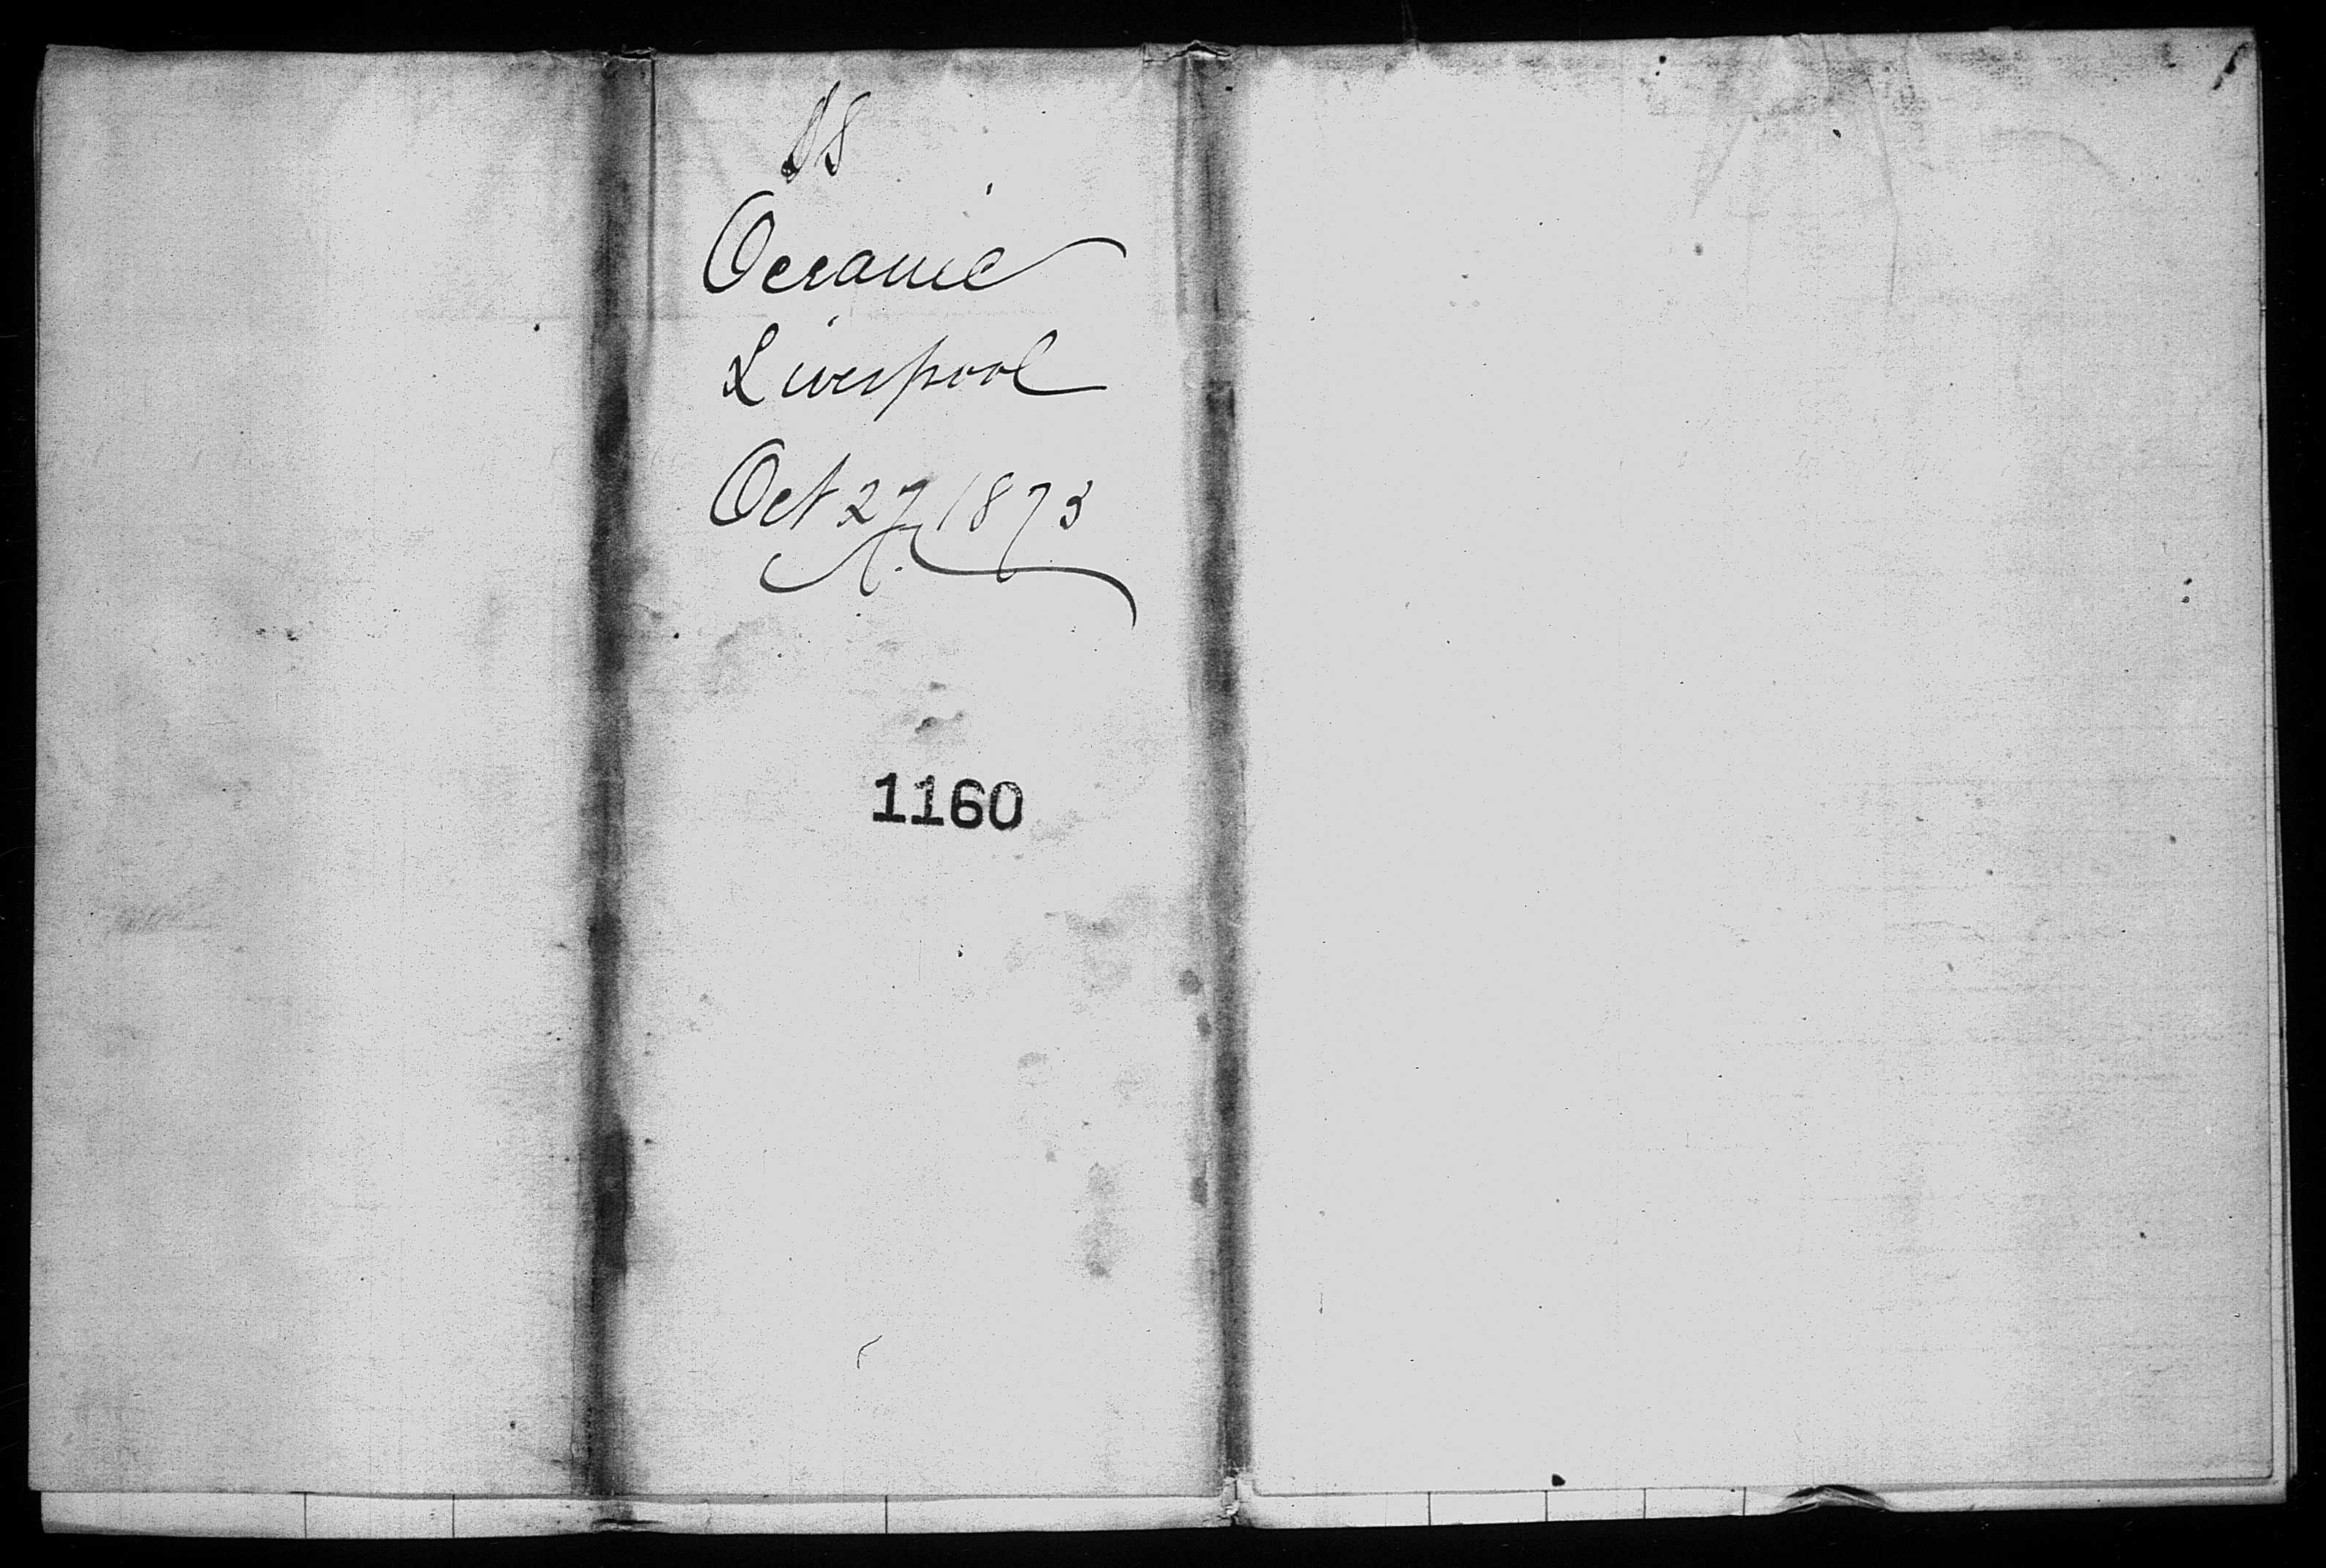 SS
Oceanic
Liverpool
Oct 27 1873
1160